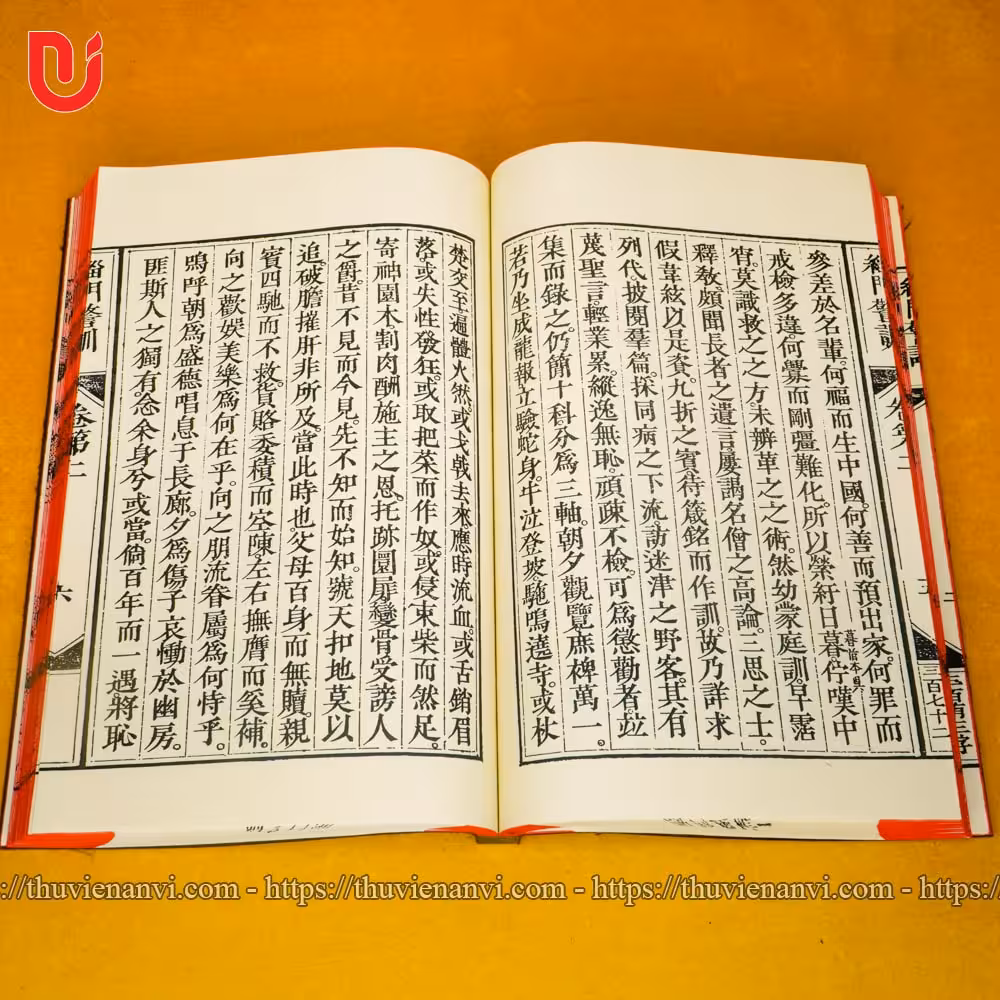 參差於名輩。何福而生中國。何善而預出家。何罪而
戒檢多違。何釁而剛彊難化。所以縈紆日暮佇嘆中
宵。莫識救之之方。未辨革之之術。然幼蒙庭訓。早霑
釋敎。頗聞長者之遺言。屢謁名僧之高論。三思之士。
假韋絃以是資。九折之賓。待箴銘而作訓。故乃詳求
列代。披閱羣篇。採同病之下流。訪迷津之野客。其有
蔑聖言。輕業累。縱逸無恥。頑疎不檢。可爲懲勸者。竝
集而錄之。仍簡十科。分爲三軸。朝夕觀覽。庶裨萬一。
若乃坐成龍報。立驗蛇身。牛泣登坡。駞鳴遶寺。或杖
楚交至。遍體火然。或戈戟去來。應時流血。或舌銷眉
落。或失性發狂。或取把菜而作奴。或侵束柴而然足。
寄神園木。割肉酬施主之恩。托跡圊扉。變骨受謗人
之爵。昔不見而今見。先不知而始知。號天扣地莫以
追。破膽摧肝非所及。當此時也。父母百身而無贖。親
賓四馳而不救。貨賂委積而空陳。左右撫膺而奚補。
向之歡娛美樂爲何在乎。向之朋流眷屬爲何恃乎。
嗚呼。朝爲盛德。唱息于長廊。夕爲傷子。哀慟於幽房。
匪斯人之獨有。念余身兮或當。倘百年而一遇。將恥
緇門警訓 卷第二 六
://thuvienanvi.com - https://thuvienanvi.com - https://thuvienanvi.com - https://